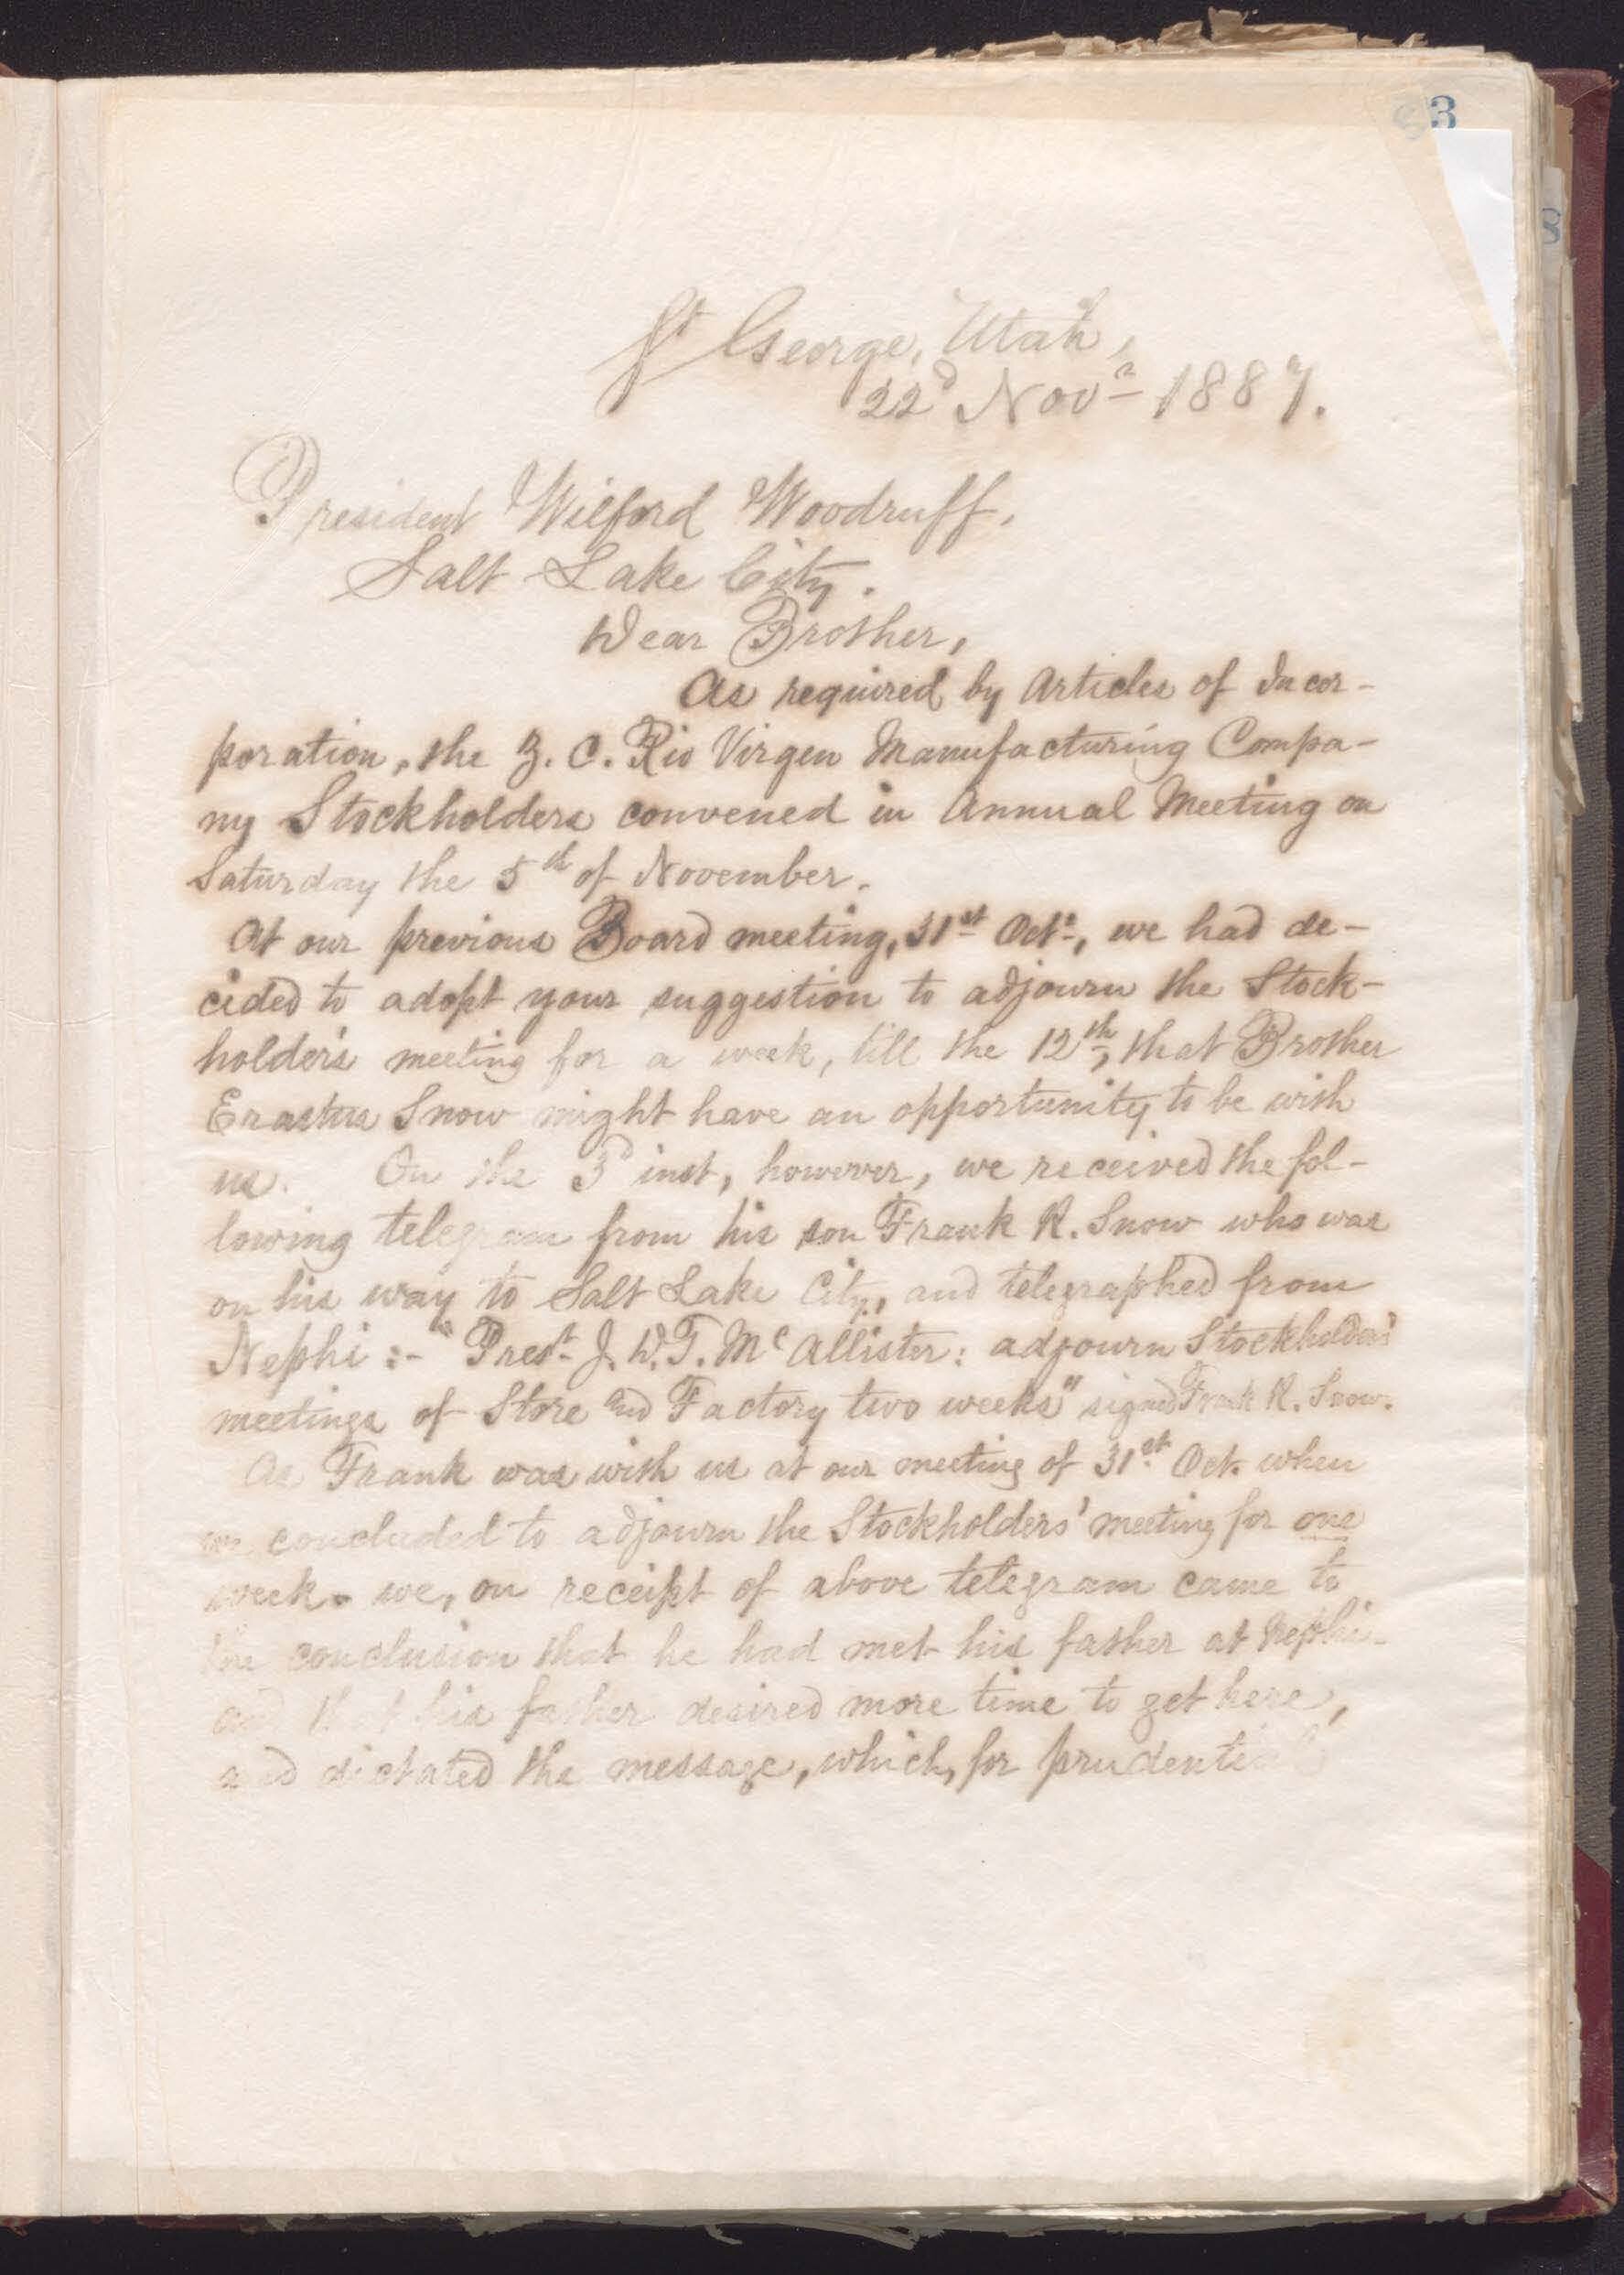 3
8
St George, Utah,
22d Novr 1887.
President Wilford Woodruff,
Salt Lake City.
Dear Brother,
As required by Articles of Incor-
poration, the Z. C. Rio Virgen Manufacturing Compa-
ny Stockholders convened in Annual Meeting on
Saturday the 5th of November.
At our previous Board meeting, 31st Octr, we had de-
cided to adopt your suggestion to adjourn the Stock-
holders meeting for a week, till the 12th, that Brother
Erastus Snow might have an opportunity to be with
us. On the 3d inst, however, we received the fol-
lowing telegram from his son Frank R. Snow who was
on his way to Salt Lake City, and telegraphed from
Nephi :- "Prest J. D. T. McAllister: adjourn Stockholders'
meetings of Store and Factory two weeks" signed Frank R. Snow.
As Frank was with us at our meeting of 31st Oct. when
we concluded to adjourn the Stockholders' meeting for one
week. we, on receipt of above telegram came to
the conclusion that he had met his father at Nephi-
and that his father desired more time to get here,
and dictated the message, which, for prudential